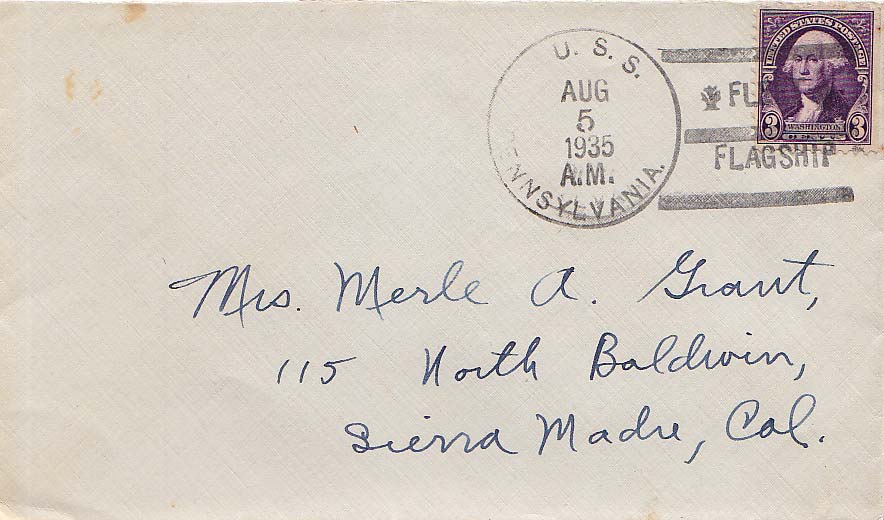 U. S. S.
AUG
5
1935
A.M.
PENNSYLVANIA.
FLAGSHIP
UNITED STATES POSTAGE
3 WASHINGTON 3
CENTS
Mrs. Merle A. Grant,
115 North Baldwin,
Sierra Madre, Cal.